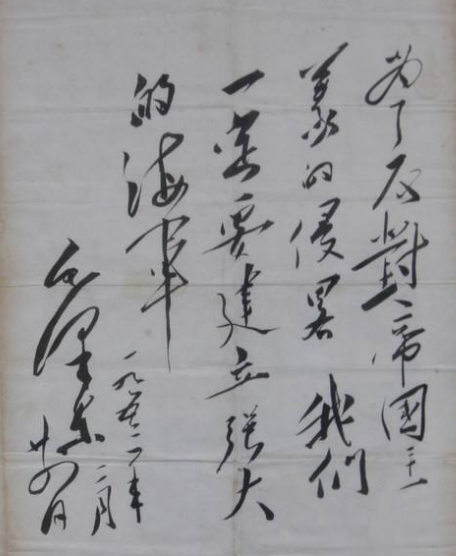 为了反對帝國主
義的侵畧我們
一定要建立强大
的海軍
毛澤東
一九五二年
二月
廿四日